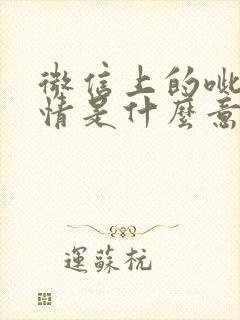 微信上的呲
情是什麼意
運蘇杭